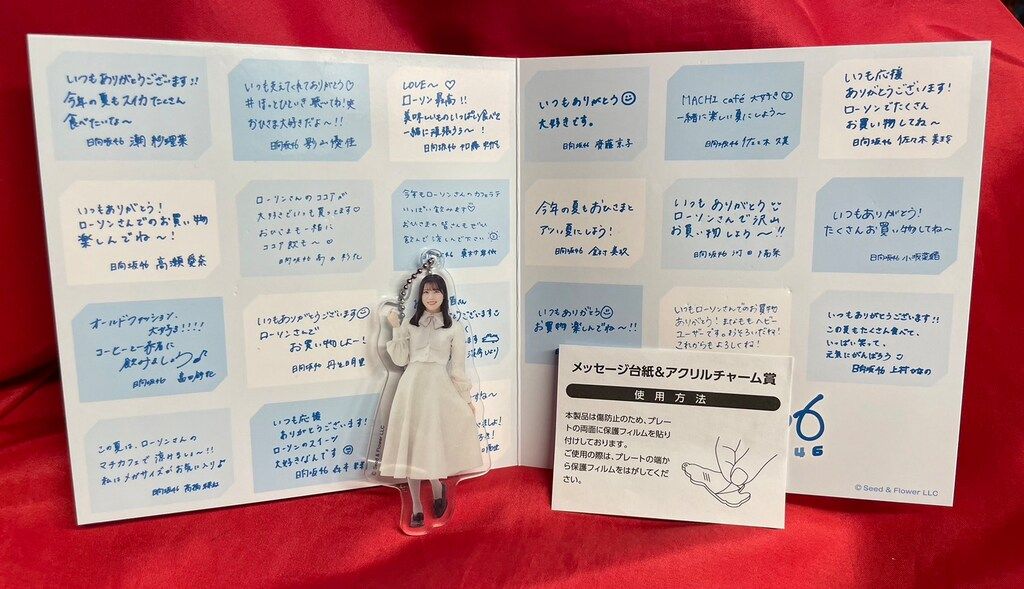 いつもありがとうございます!!
今年の夏もスイカたくさん
食べたいな〜
日向坂46 潮 紗理菜
いつも支えてくれてありがとう♡
#ほっとひといき 聴いてね!
おひさま大好きだよ〜!!
日向坂46 影山優佳
LOVE〜 ♡
ローソン最高!!
美味しいものいっぱい食べて
一緒に頑張ろう〜!
日向坂46 加藤史帆
いつもありがとう
大好きです。
日向坂46 齊藤京子
MACHI café 大好き
一緒に楽しい夏にしよう〜
日向坂46 佐々木久美
いつも応援
ありがとうございます!
ローソンでたくさん
お買い物してね〜
日向坂46 佐々木美玲
いつもありがとう!
ローソンさんでのお買い物
楽しんでね〜!
日向坂46 高瀬愛奈
ローソンさんのココアが
大好きでいつも買ってます♡
おひさまも一緒に
ココア飲も〜♡
日向坂46
今年もローソンさんのカフェラテ
いっぱい飲みます
おひさまの皆さんもぜひ
飲んで涼しんで下さい
今年の夏もおひさまと
アツい夏にしよう!
日向坂46 金村美玖
いつもありがとう
ローソンさんで沢山
お買い物しよう〜!!
日向坂46 河田陽菜
いつもありがとう!
たくさんお買い物してね〜
日向坂46 小坂菜緒
オールドファッション、
大好き!!!!
コーヒーと一緒に
飲みましょう♪
日向坂46
いつもありがとうございます
ローソンさんで
お買い物しよー!
日向坂46 丹生明里
いつもありがとう
お買物 楽しんでね〜!!
いつもローソンさんでのお買物
ありがとう!まなももヘビー
ユーザーです。おそろいだね!
これからもよろしくね!
いつもありがとうございます!!
この夏もたくさん食べて、
いっぱい笑って、
元気にがんばろう
日向坂46 上村ひなの
この夏は、ローソンさんの
マチカフェで 涼もないっ〜!!
私はメガサイズがお気に入り♪
日向坂46
いつも応援
ありがとうございます!
ローソンのスイーツ
大好きなんです
日向坂46
メッセージ台紙&アクリルチャーム賞
使用方法
本製品は傷防止のため、プレー
トの両面に保護フィルムを貼り
付けしております。
ご使用の際は、プレートの端か
ら保護フィルムをはがしてくだ
さい。
46
© Seed & Flower LLC
© Seed & Flower LLC